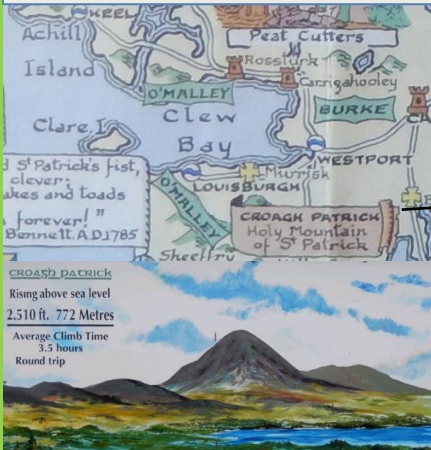 KEEL
Achill
Island
Peat Cutters
Rossturk
Carrigahooley
O'MALLEY
BURKE
Clew
Bay
Clare I.
WESTPORT
Murrisk
LOUISBURGH
O'MALLEY
d St Patrick's fist,
clever;
akes and toads
forever!"
Bennett. A.D. 1785
CROAGH PATRICK
Holy Mountain
of St Patrick
Sheeffry
CROAGH PATRICK
Rising above sea level
2.510 ft. 772 Metres
Average Climb Time
3.5 hours
Round trip